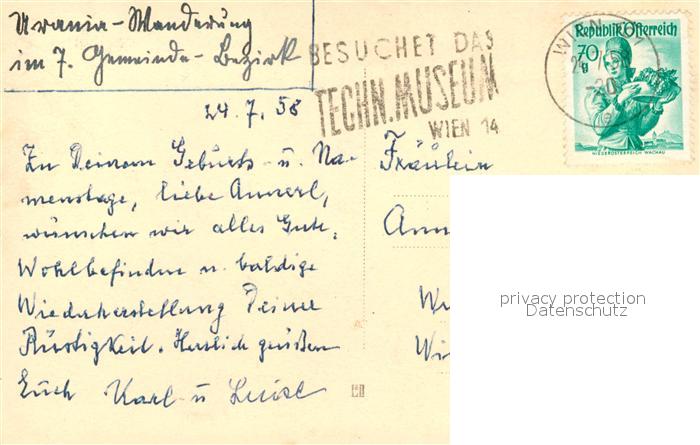 Urania-Wanderung
im 7. Gemeinde-Bezirk
BESUCHET DAS
TECHN. MUSEUM
WIEN 14
WIEN
Republik Österreich
70
g
NIEDERÖSTERREICH WACHAU
24.7.58
Zu Deinem Geburts- u. Na-
menstage, liebe Annerl,
wünschen wir alles Gute,
Wohlbefinden u. baldige
Wiederherstellung Deiner
Rüstigkeit. Herzlich grüßen
Euch Karl u Luise
Fräulein
Ann
Wi
privacy protection
Datenschutz